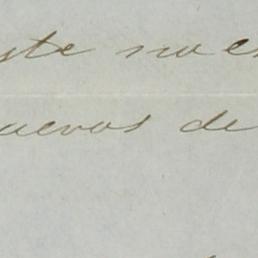 yste no es
uevos de